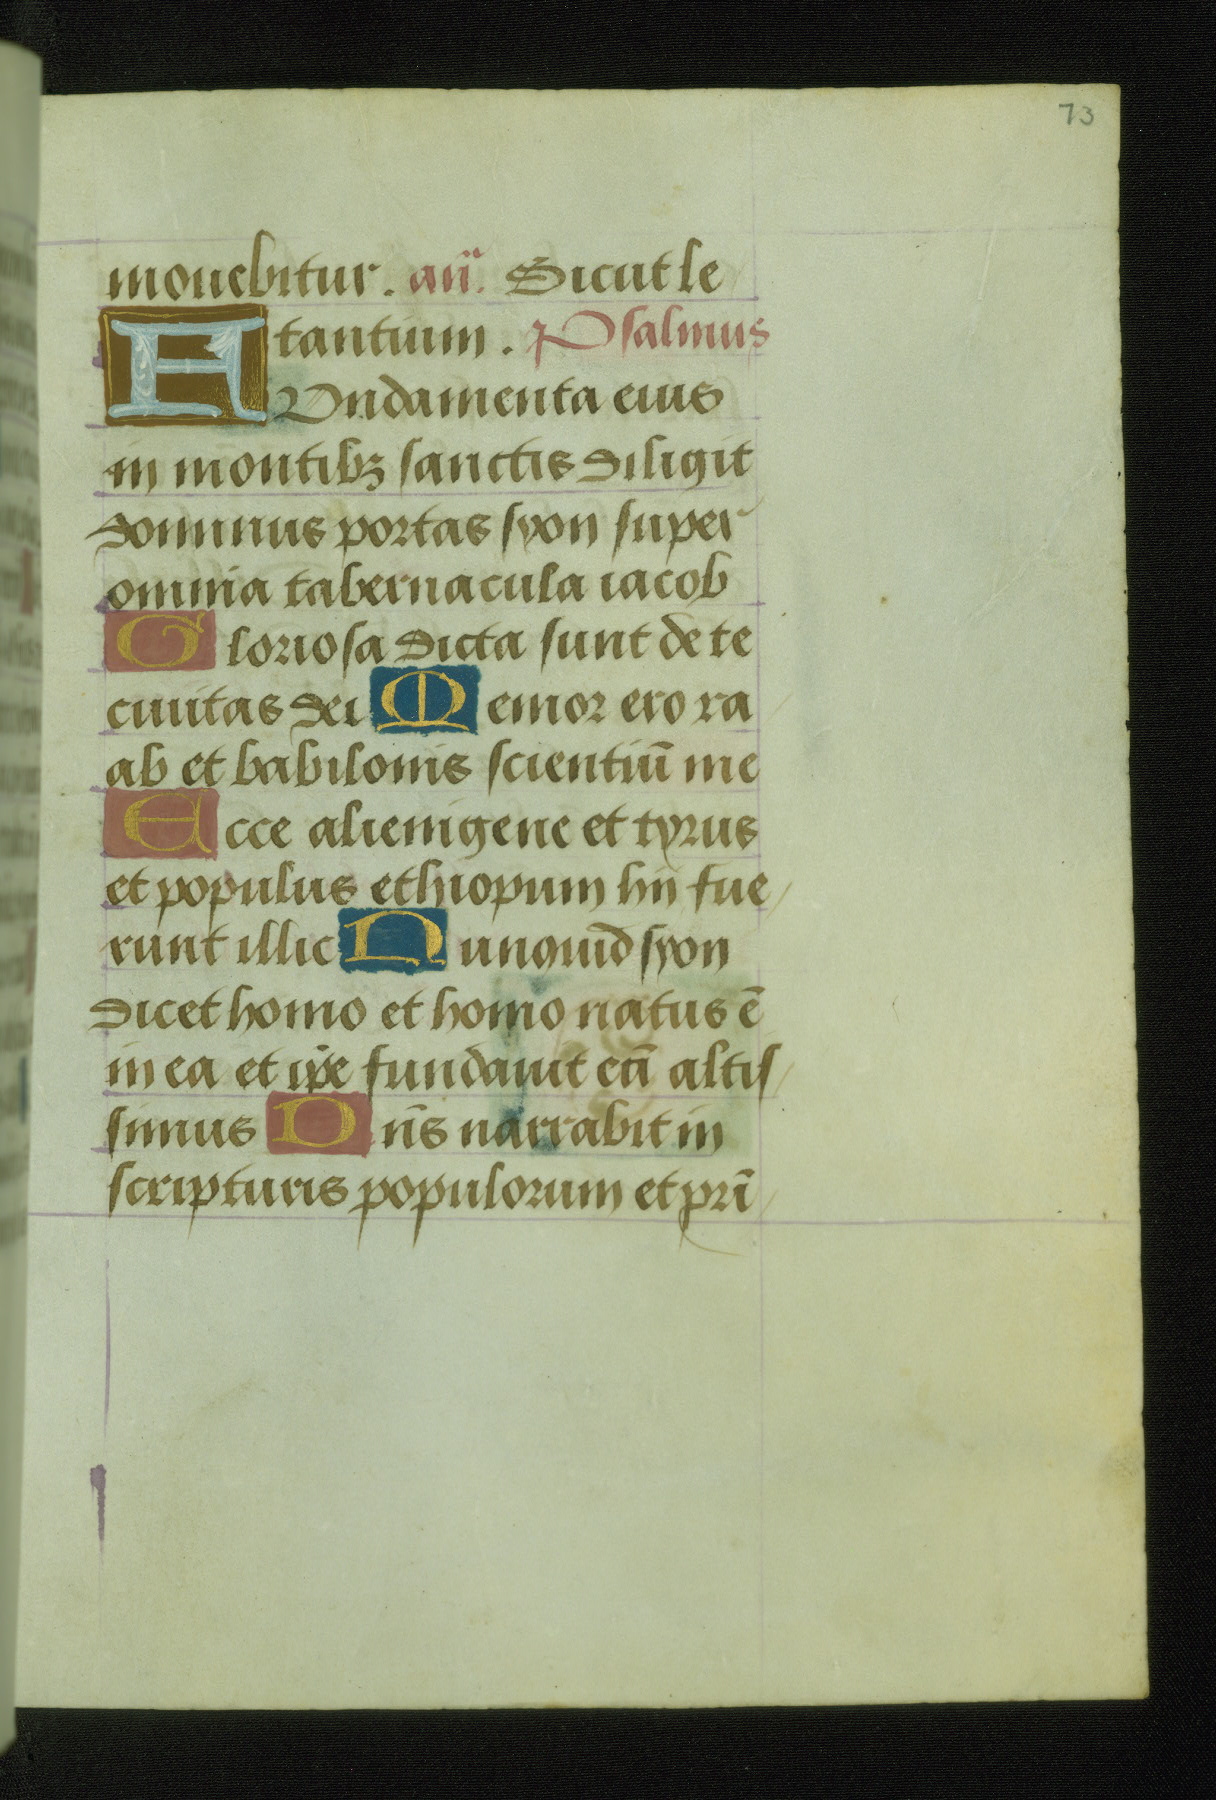 73
mouebitur. an̄. Sicut le
tantium. Psalmus
FVndamenta eius
in montibꝫ sanctis diligit
dominus portas syon super
omnia tabernacula iacob
Gloriosa dicta sunt de te
ciuitas dei Memor ero ra
ab et babilonis scientiū me
Ecce alienigene et tyrus
et populus ethiopum hij fue
runt illic Nunquid syon
dicet homo et homo natus ē
in ea et ip̄e fundauit eā altis
simus Dn̄s narrabit in
scripturis populorum et prī